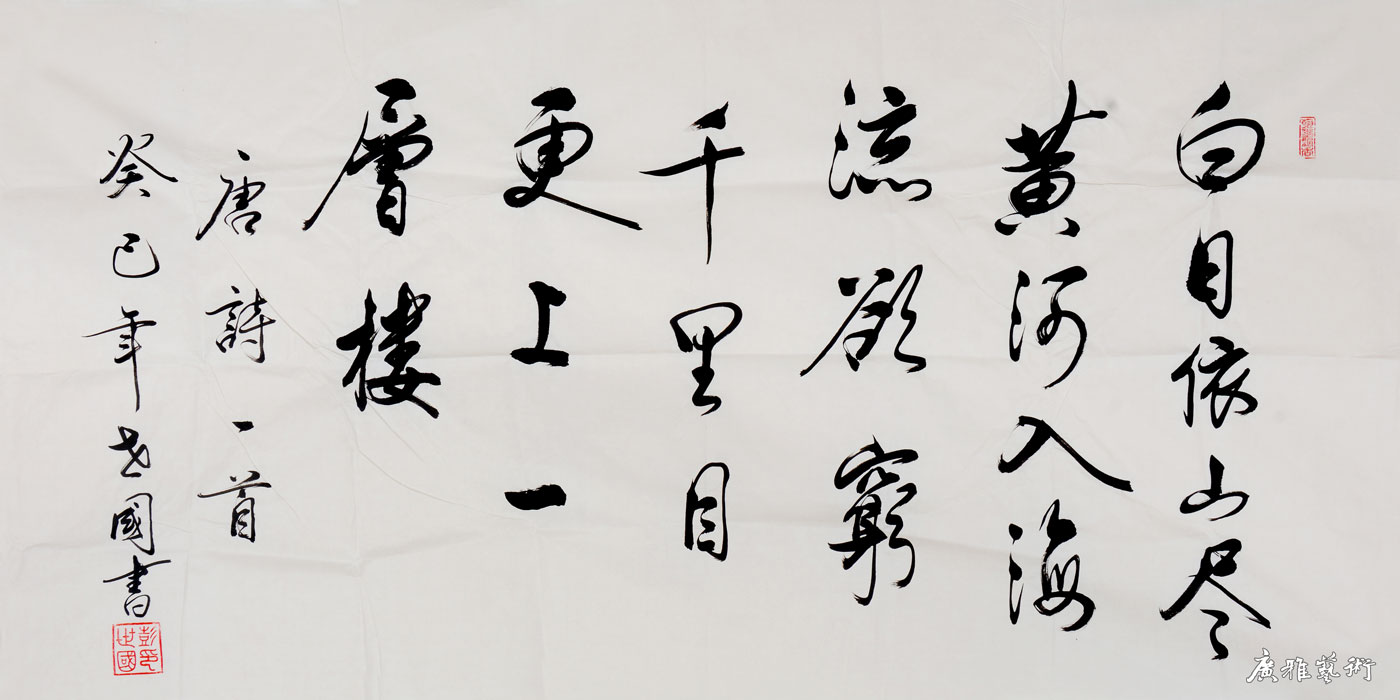 白日依山尽
黄河入海
流欲窮
千里目
更上一
層楼
唐詩一首
癸巳年世國書
彭印世國
廣雅藝術